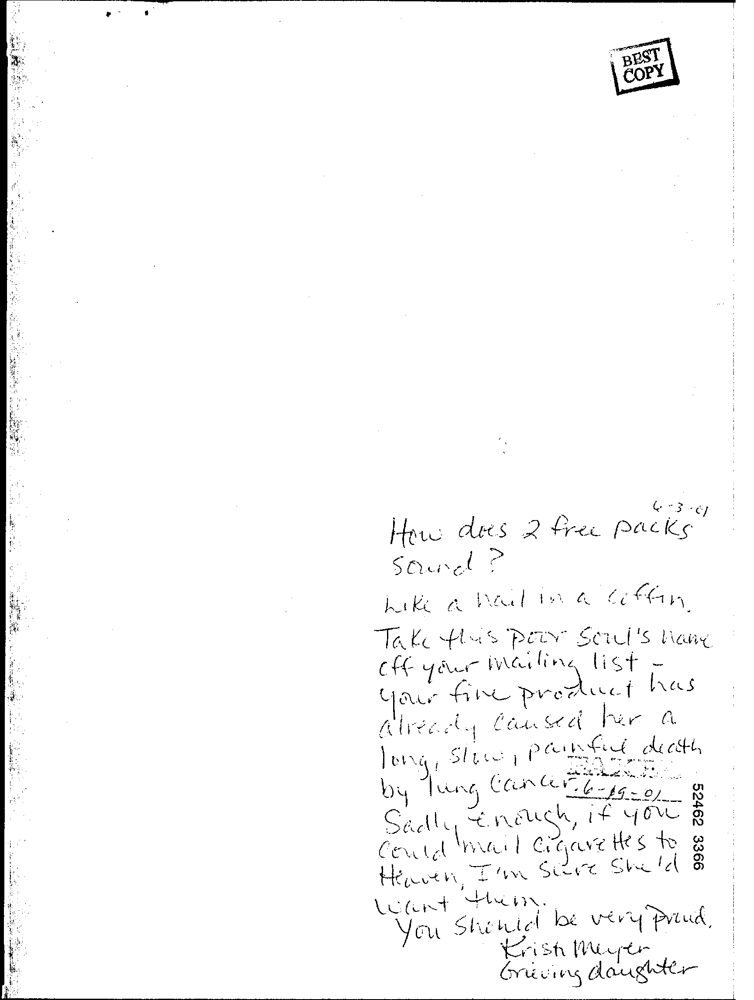 BEST
COPY
6-3-01
How does 2 free packs
sound?
Like a nail in a coffin.
Take this poor soul's name
off your mailing list -
your fine product has
already caused her a
long, slow, painful death
by lung cancer. 6-19-01
Sadly enough, if you
could mail cigarettes to
Heaven, I'm sure she'd
want them.
You should be very proud.
Kristi Meyer
Grieving daughter
52462 3366